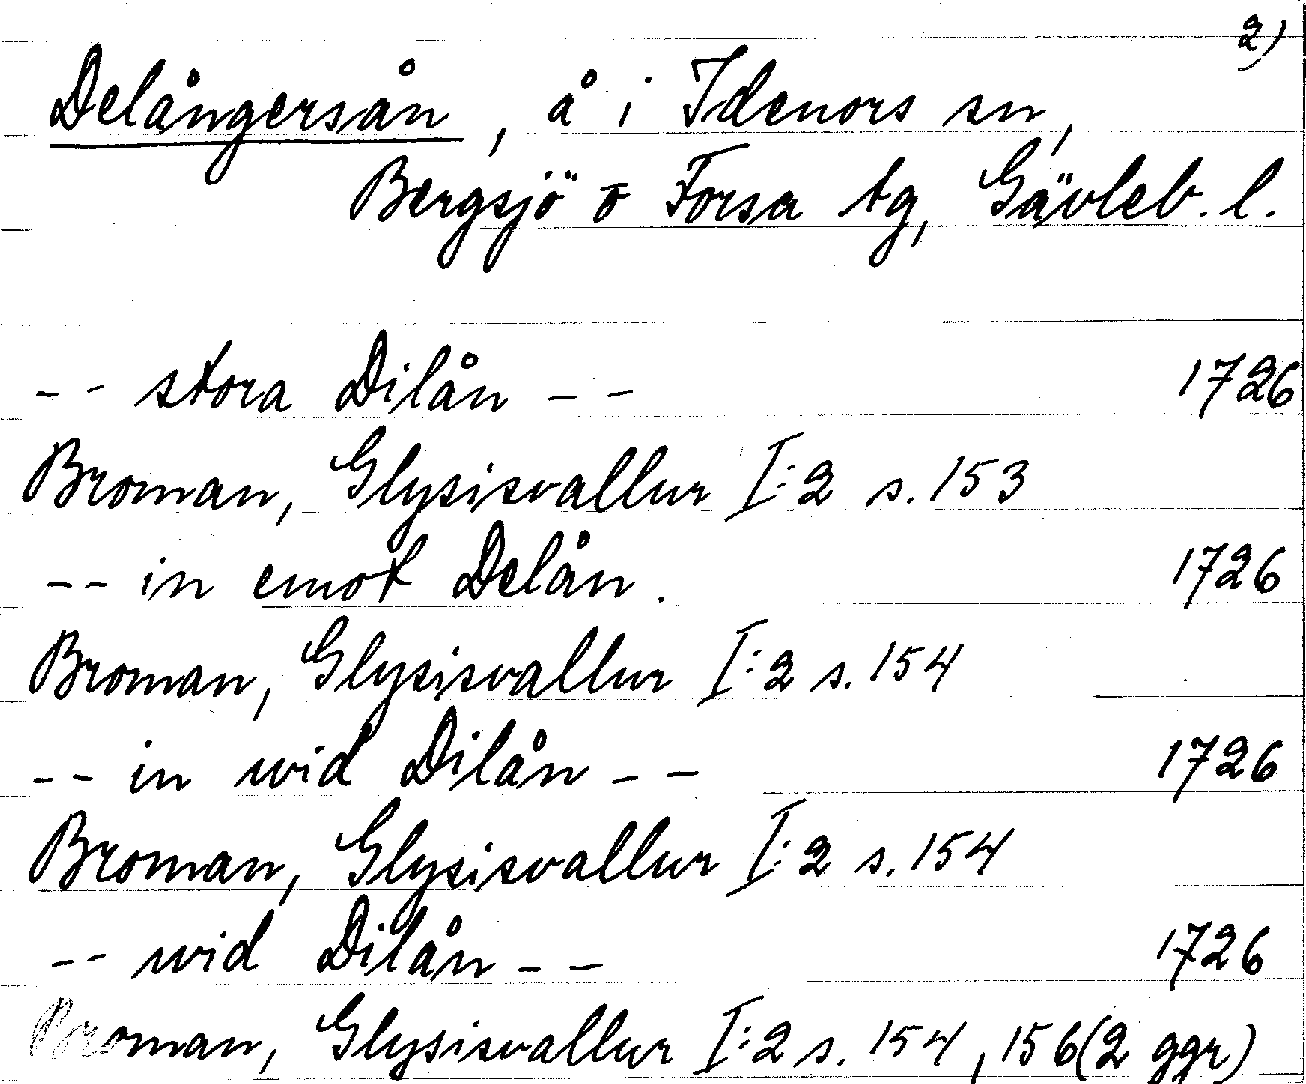 2)
Delångersån, å i Idenors sn,
Bergsjö o Forsa tg, Gävleb. l.
-- stora Dilån -- 1726
Broman, Glysisvallur I:2 s. 153
-- in emot Delån. 1726
Broman, Glysisvallur I:2 s. 154
-- in wid Dilån -- 1726
Broman, Glysisvallur I:2 s. 154
-- wid Dilån -- 1726
Broman, Glysisvallur I:2 s. 154, 156 (2 ggr)